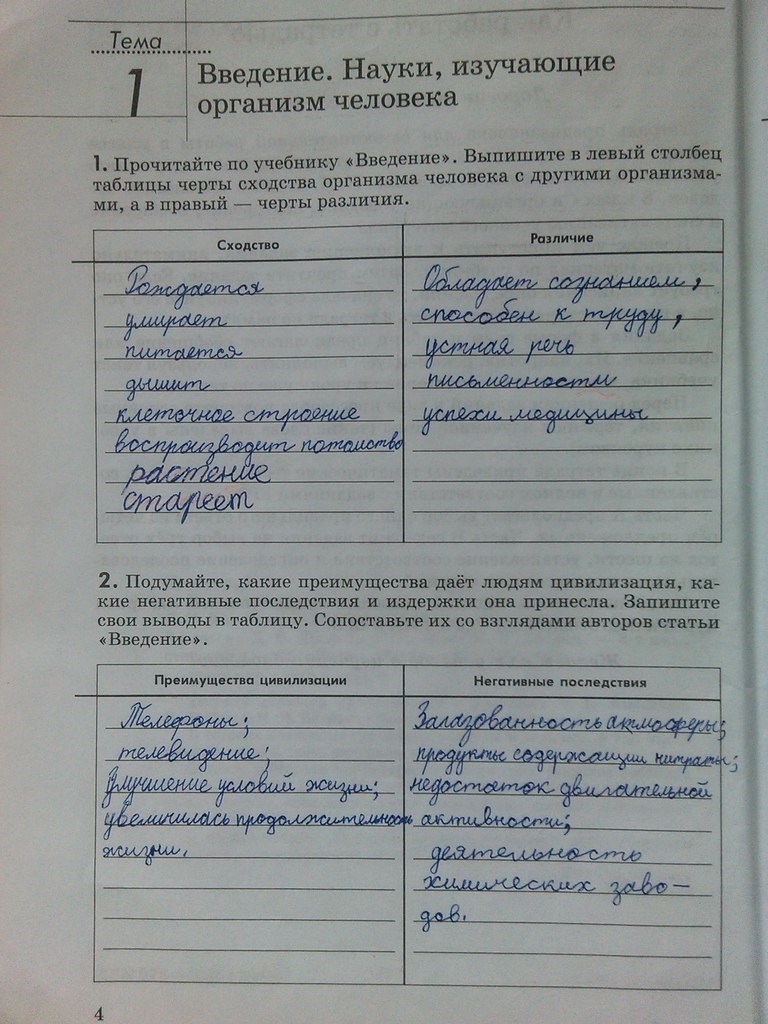 Тема
1
Введение. Науки, изучающие
организм человека
1. Прочитайте по учебнику «Введение». Выпишите в левый столбец
таблицы черты сходства организма человека с другими организма-
ми, а в правый — черты различия.
Сходство
Различие
Рождается
умирает
питается
дышит
клеточное строение
воспроизводит потомство
растение
стареет
Обладает сознанием,
способен к труду,
устная речь
письменности
успехи медицины
2. Подумайте, какие преимущества даёт людям цивилизация, ка-
кие негативные последствия и издержки она принесла. Запишите
свои выводы в таблицу. Сопоставьте их со взглядами авторов статьи
«Введение».
Преимущества цивилизации
Негативные последствия
Телефоны;
телевидение;
Улучшение условий жизни;
увеличилась продолжительность
жизни.
Загазованность атмосферы;
продукты содержащии нитраты;
недостаток двигательной
активности;
деятельность
химических заво-
дов.
4